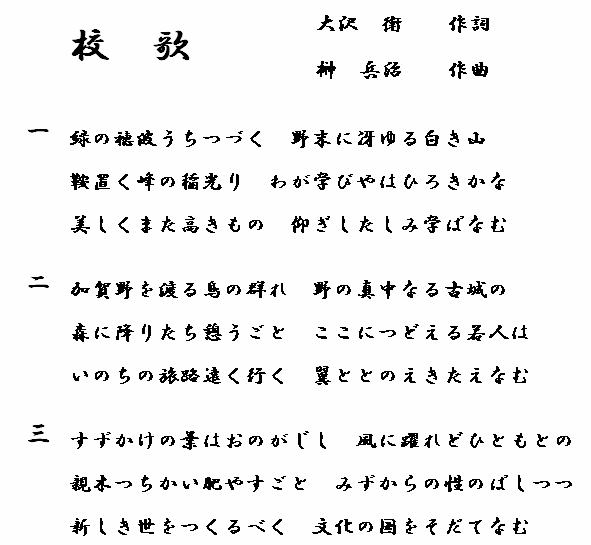 校　歌
大沢　衛　　作詞
榊　兵治　　作曲
一　緑の穂波うちつづく　野末に冴ゆる白き山
鞍置く峰の稲光り　わが学びやはひろきかな
美しくまた高きもの　仰ぎしたしみ学ばなむ
二　加賀野を渡る鳥の群れ　野の真中なる古城の
森に降りたち憩うごと　ここにつどえる若人は
いのちの旅路遠く行く　翼ととのえきたえなむ
三　すずかけの葉はおのがじし　風に躍れどひともとの
親木つちかい肥やすごと　みずからの性のばしつつ
新しき世をつくるべく　文化の国をそだてなむ